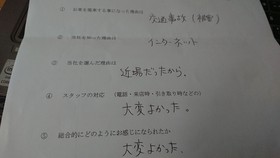 ① お車を廃車する事になった理由は
交通事故(相手)
② 当社を知った理由は
インターネット
③ 当社を選んだ理由は
近場だったから。
④ スタッフの対応(電話・来店時・引き取り時などの)
大変よかった。
⑤ 総合的にどのようにお感じになられたか
大変よかった。